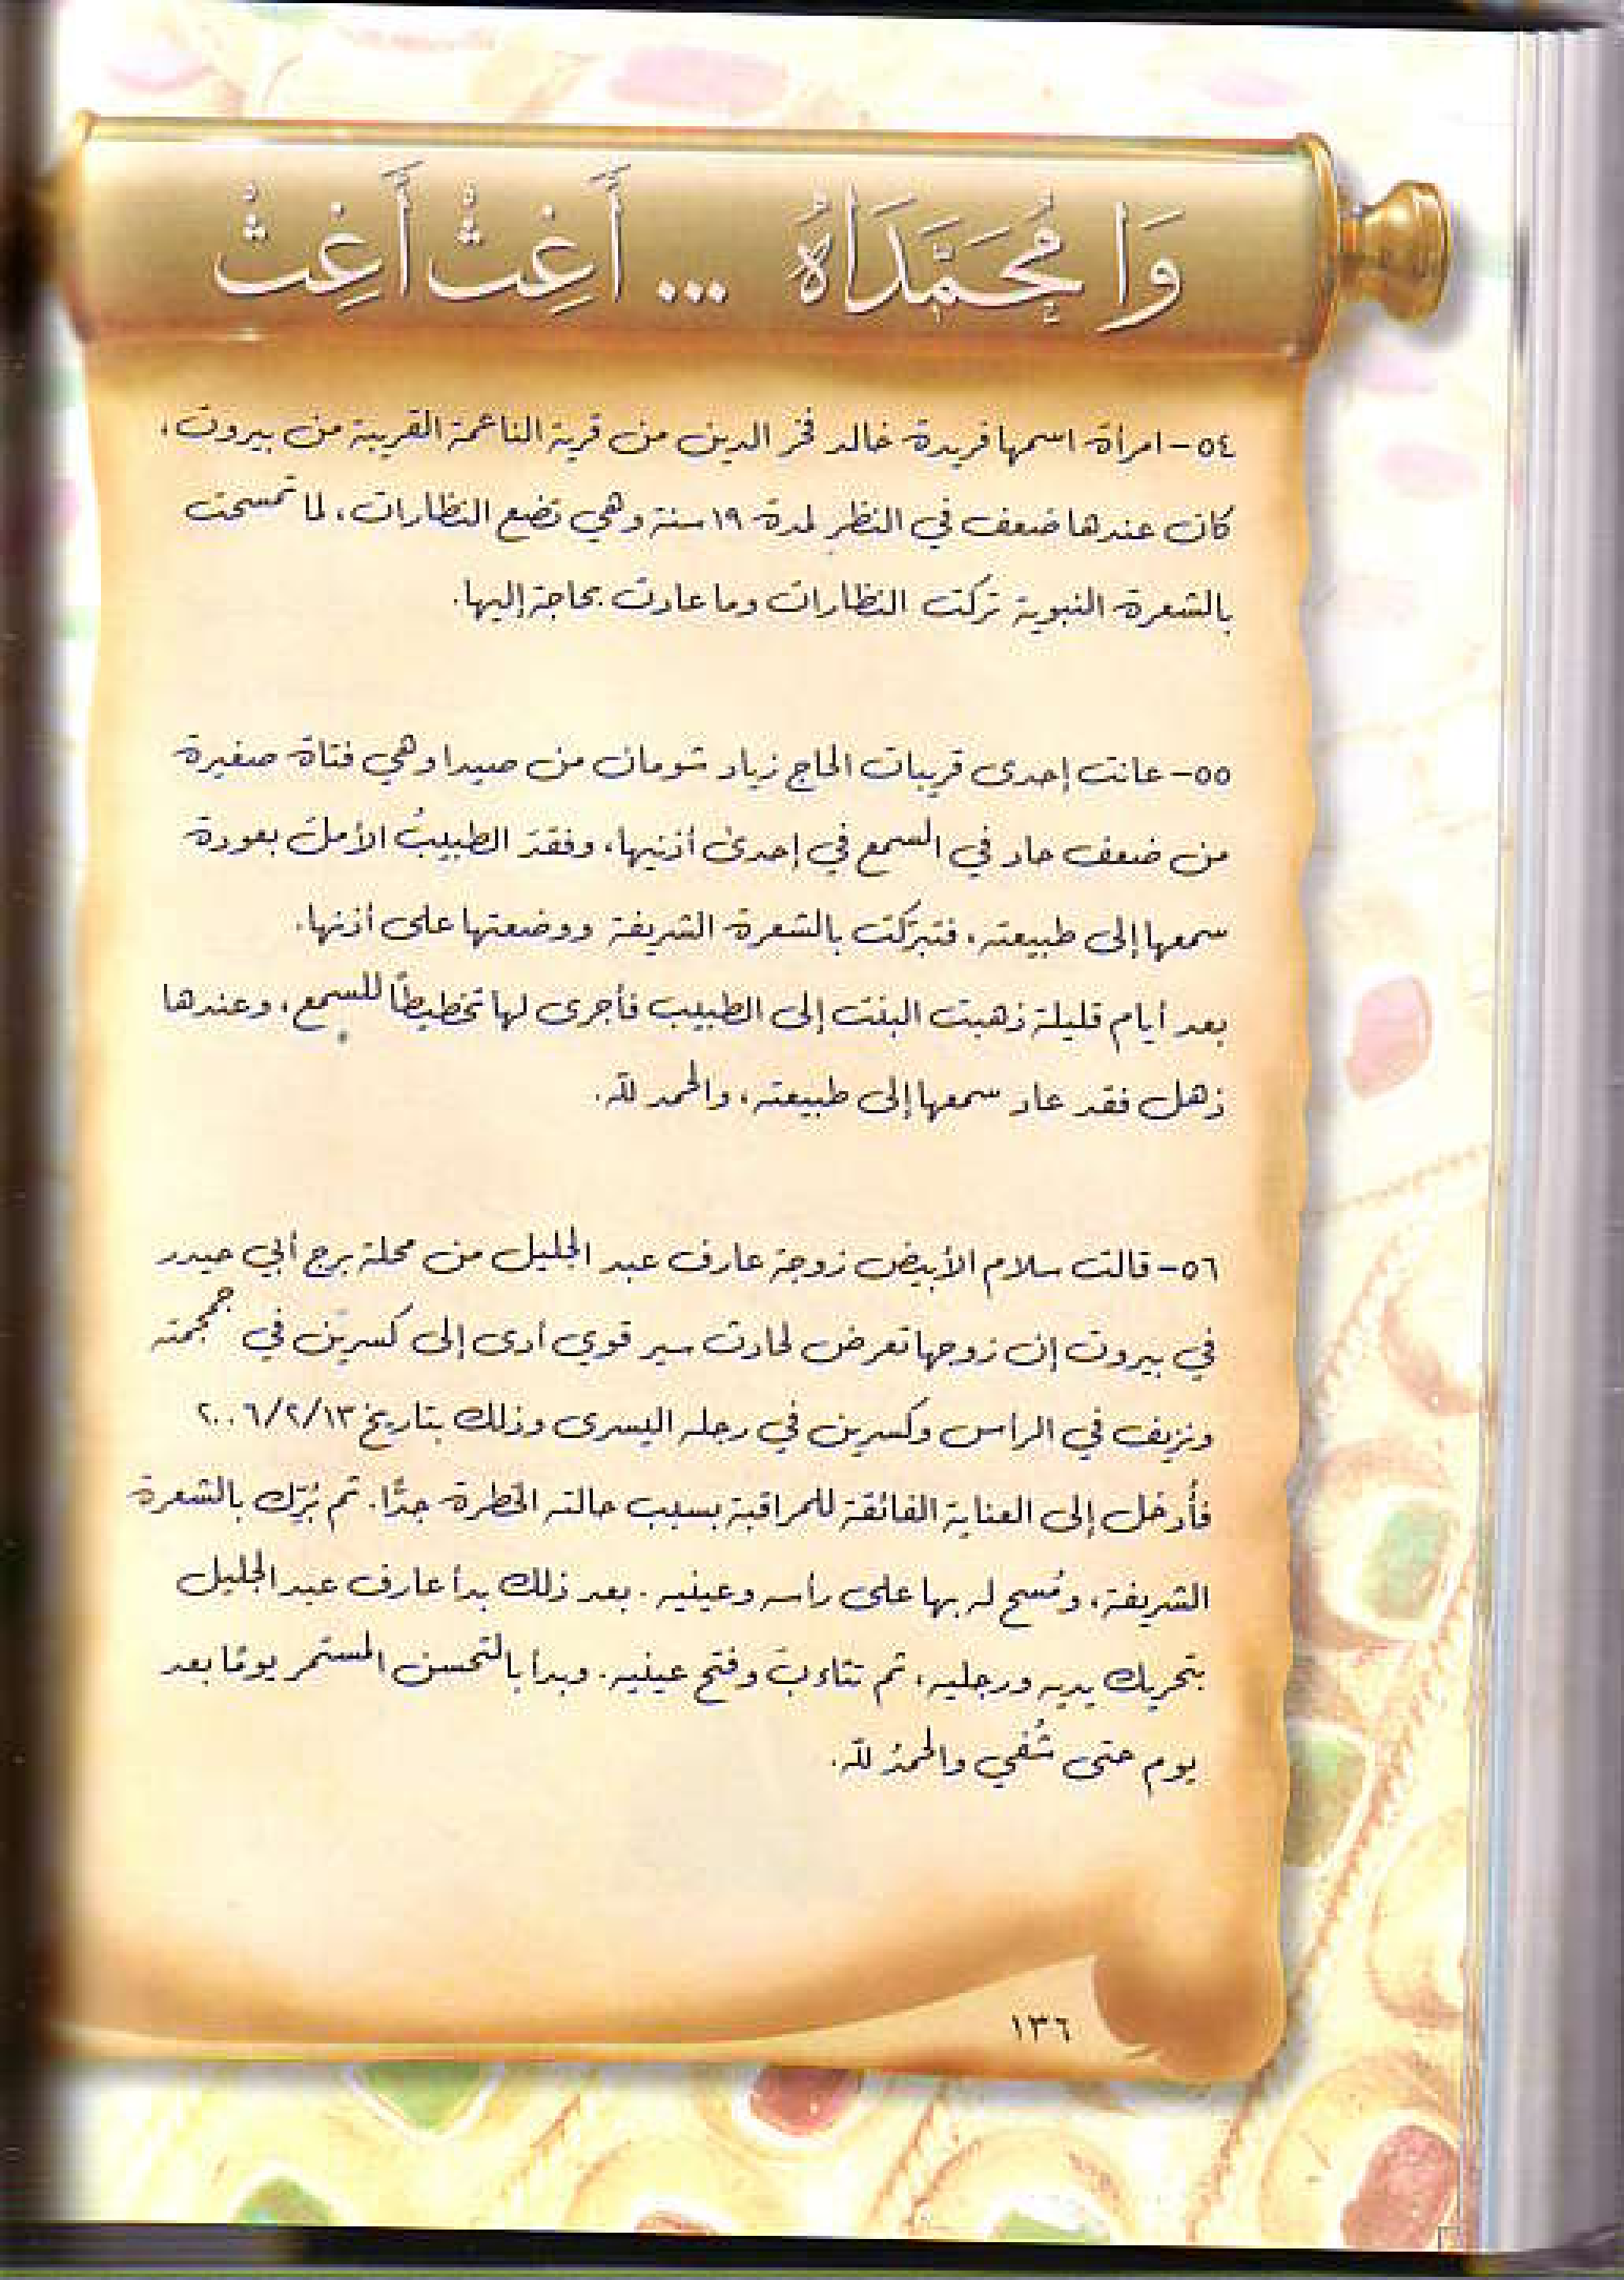 وَا مُحَمَّدَاهُ ... أَغِثْ أَغِثْ
٥٤- امرأة اسمها فريدة خالد فخر الدين من قرية الناعمة القريبة من بيروت،
كان عندها ضعف في النظر لمدة ١٩ سنة وهي تضع النظارات، لما تمسحت
بالشعرة النبوية تركت النظارات وما عادت بحاجة إليها.
٥٥- عانت إحدى قريبات الحاج زياد شومان من صيدا وهي فتاة صغيرة
من ضعف حاد في السمع في إحدى أذنيها، وفقدَ الطبيبُ الأملَ بعودة
سمعها إلى طبيعته، فتبرّكت بالشعرة الشريفة ووضعتها على أذنها.
بعد أيام قليلة ذهبت البنت إلى الطبيب فأجرى لها تخطيطًا للسمع، وعندها
ذهل فقد عاد سمعها إلى طبيعته، والحمد لله.
٥٦- قالت سلام الأبيض زوجة عارف عبد الجليل من محلة برج أبي حيدر
في بيروت إن زوجها تعرض لحادث سير قوي أدى إلى كسرين في جمجمته
ونزيف في الرأس وكسرين في رجله اليسرى وذلك بتاريخ ٢٠٠٦/٢/١٣
فأُدخل إلى العناية الفائقة للمراقبة بسبب حالته الخطرة جدًّا. ثم بُرّك بالشعرة
الشريفة، ومُسح له بها على رأسه وعينيه. بعد ذلك بدأ عارف عبد الجليل
بتحريك يديه ورجليه، ثم تثاءبَ وفتح عينيه. وبدأ بالتحسن المستمر يومًا بعد
يوم حتى شُفي والحمدُ لله.
١٣٦